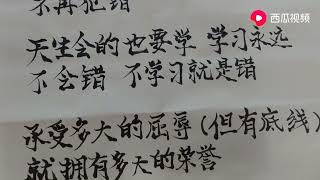 不再犯错
西瓜视频
天生会的也要学 学习永远
不会错 不学习就是错
承受多大的屈辱(但有底线)
就拥有多大的荣誉